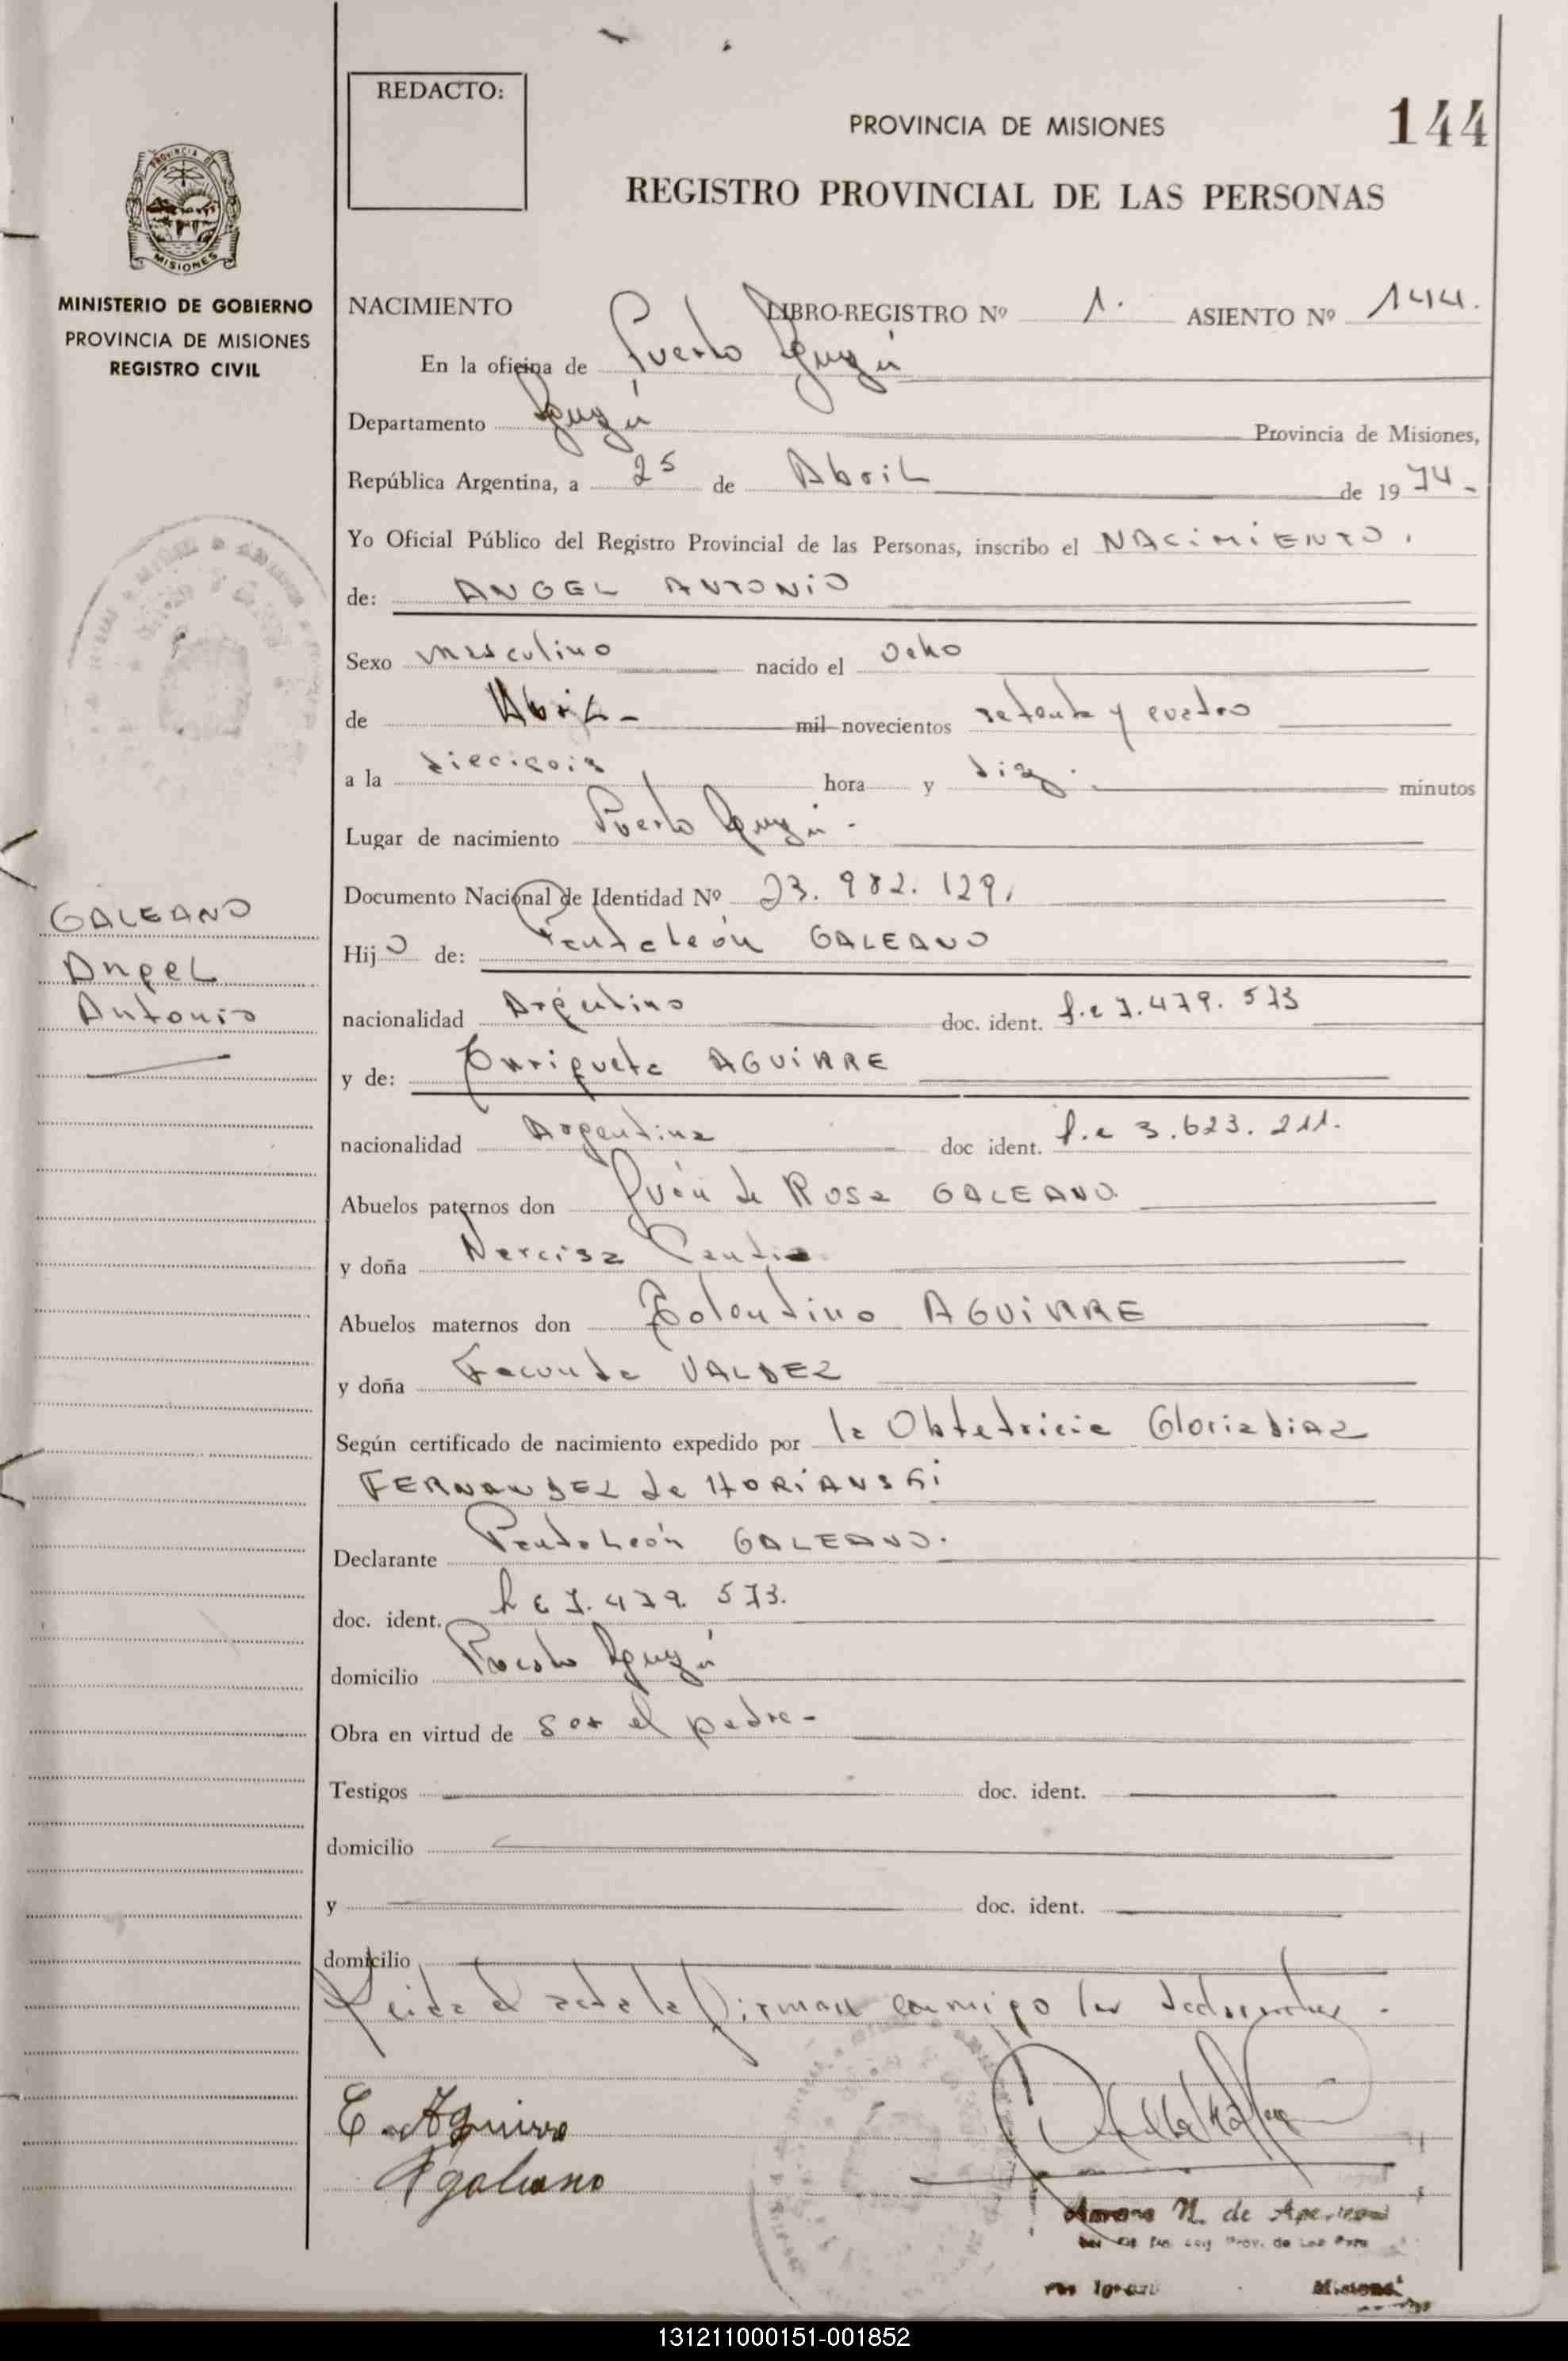 REDACTO:
PROVINCIA DE MISIONES
144
REGISTRO PROVINCIAL DE LAS PERSONAS
PROVINCIA DE
MISIONES
MINISTERIO DE GOBIERNO
PROVINCIA DE MISIONES
REGISTRO CIVIL
NACIMIENTO LIBRO-REGISTRO Nº 1. ASIENTO Nº 144.
En la oficina de Puerto Iguazú
Departamento Iguazú Provincia de Misiones,
República Argentina, a 25 de Abril de 1974-
Yo Oficial Público del Registro Provincial de las Personas, inscribo el NACIMIENTO.
de: ANGEL ANTONIO
Sexo masculino nacido el ocho
de Abril- mil novecientos setenta y cuatro
a la dieciseis hora y diez. minutos
Lugar de nacimiento Puerto Iguazú.-
Documento Nacional de Identidad Nº 23.982.129.
GALEANO
Angel
Antonio
Hijo de: Pantaleón GALEANO
nacionalidad Argentino doc. ident. l.e 7.479.573
y de: Enriqueta AGUIRRE
nacionalidad Argentina doc ident. l.c 3.623.211.
Abuelos paternos don Juan de Rosa GALEANO
y doña Narcisa
Abuelos maternos don Tolentino AGUIRRE
y doña Facunda VALDEZ
Según certificado de nacimiento expedido por la Obtetricia Gloria DIAZ
FERNANDEZ de HORIANSKI
Declarante Pantaleón GALEANO.
doc. ident. L E 7.479.573.
domicilio Puerto Iguazú
Obra en virtud de ser el padre-
Testigos doc. ident.
domicilio
y doc. ident.
domicilio
Leida el acta la firman conmigo los declarantes.
E. Aguirre
P galeano
N. de
Prov. de Las Pers
Misiones
131211000151-001852